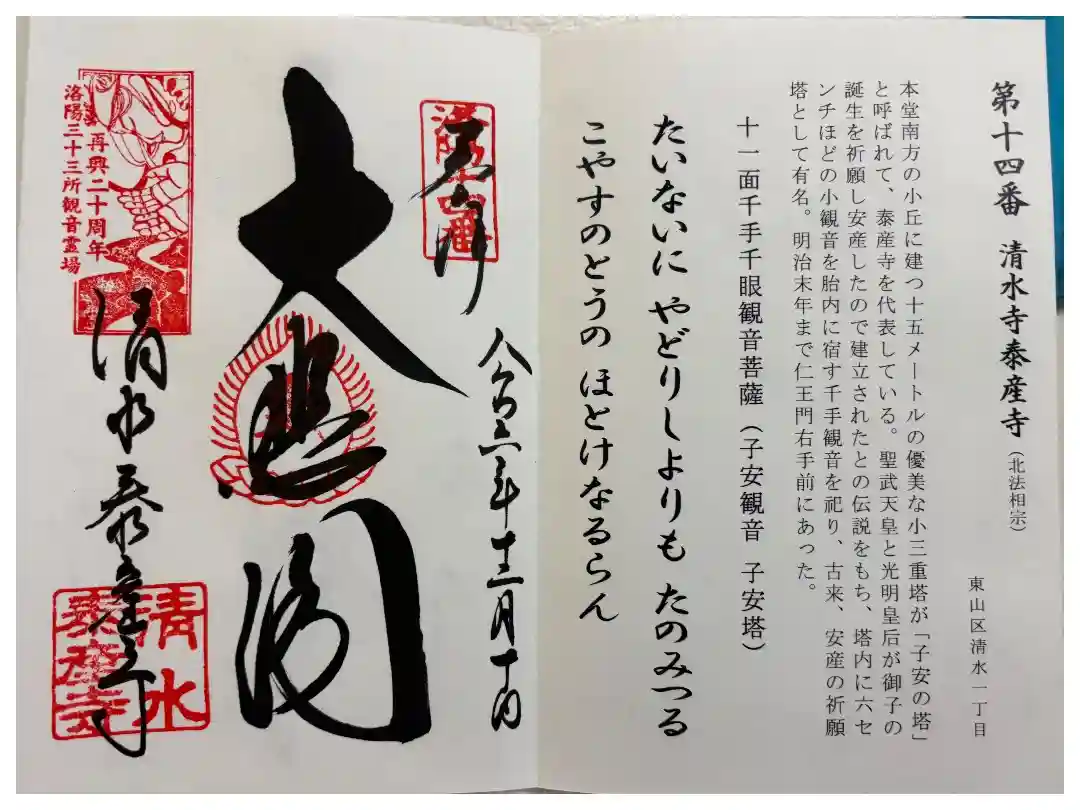 第十四番 清水寺泰産寺（北法相宗）
東山区清水一丁目
本堂南方の小丘に建つ十五メートルの優美な小三重塔が「子安の塔」
と呼ばれて、泰産寺を代表している。聖武天皇と光明皇后が御子の
誕生を祈願し安産したので建立されたとの伝説をもち、塔内に六セ
ンチほどの小観音を胎内に宿す千手観音を祀り、古来、安産の祈願
塔として有名。明治末年まで仁王門右手前にあった。
十一面千手千眼観音菩薩（子安観音 子安塔）
たいないに やどりしよりも たのみつる
こやすのとうの ほとけなるらん
奉拝
洛陽十四番
令和六年十二月十日
大悲閣
再興二十周年
洛陽三十三所観音霊場
清水泰産寺
清水
泰産寺